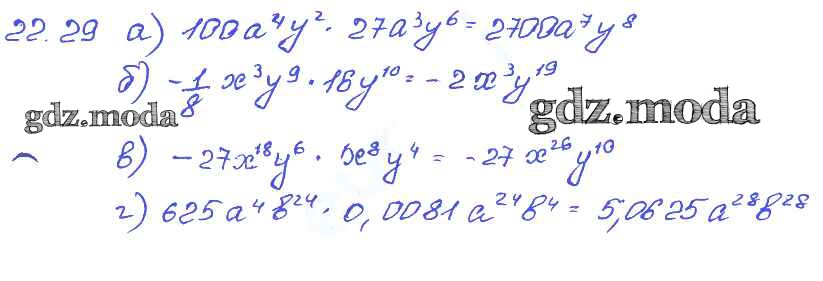 22.29 а) 100a⁴y² · 27a³y⁶ = 2700a⁷y⁸
б) -1/8 x³y⁹ · 16y¹⁰ = -2x³y¹⁹
gdz.moda gdz.moda
в) -27x¹⁸y⁶ · x⁸y⁴ = -27x²⁶y¹⁰
г) 625a⁴b²⁴ · 0,0081a²⁴b⁴ = 5,0625a²⁸b²⁸